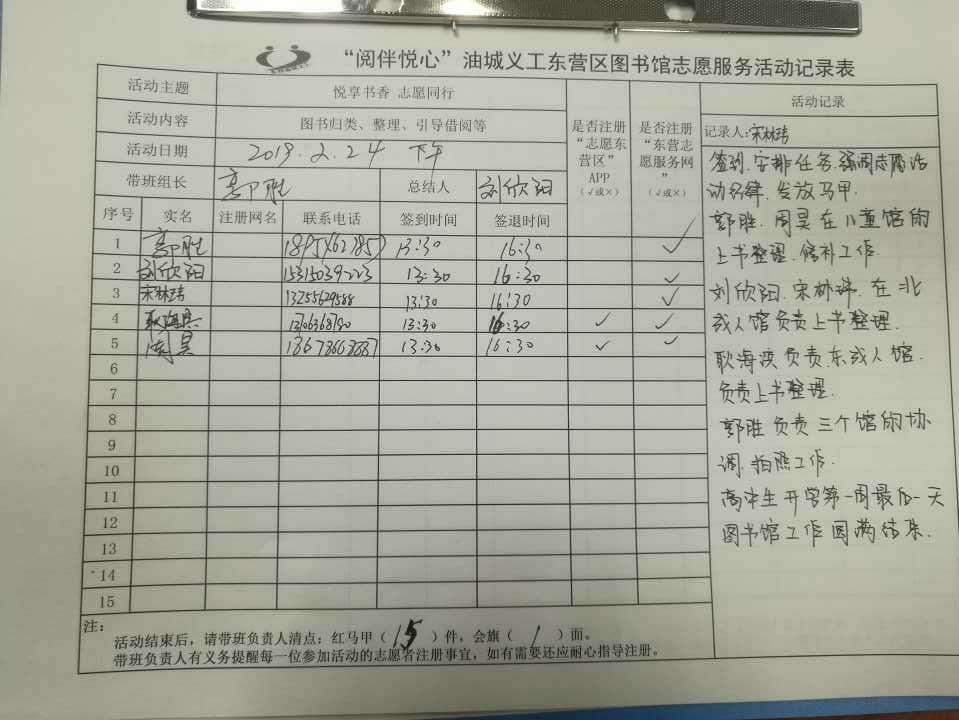 “阅伴悦心”油城义工东营区图书馆志愿服务活动记录表
活动主题 悦享书香 志愿同行
活动内容 图书归类、整理、引导借阅等
活动日期 2019.2.24 下午
带班组长 郭胜 总结人 刘欣阳
是否注册“志愿东营区”APP（√或×）
是否注册“东营志愿服务网”（√或×）
序号 实名 注册网名 联系电话 签到时间 签退时间
1 郭胜 13:30 16:30 √
2 刘欣阳 15315039223 13:30 16:30 √
3 宋林玮 13255629588 13:30 16:30 √
4 13:30 16:30 √ √
5 周昊 13:30 16:30 √ √
6
7
8
9
10
11
12
13
14
15
活动记录
记录人：宋林玮
签到、安排任务、强调志愿活
动纪律、发放马甲.
郭胜、周昊在儿童馆的
上书整理、修补工作
刘欣阳、宋林玮、在北
成人馆负责上书整理.
耿海滨负责东成人馆.
负责上书整理.
郭胜负责三个馆的协
调、拍照工作.
高中生开学第一周最后一天
图书馆工作圆满结束.
注：
活动结束后，请带班负责人清点：红马甲（15）件，会旗（1）面。
带班负责人有义务提醒每一位参加活动的志愿者注册事宜，如有需要还应耐心指导注册。